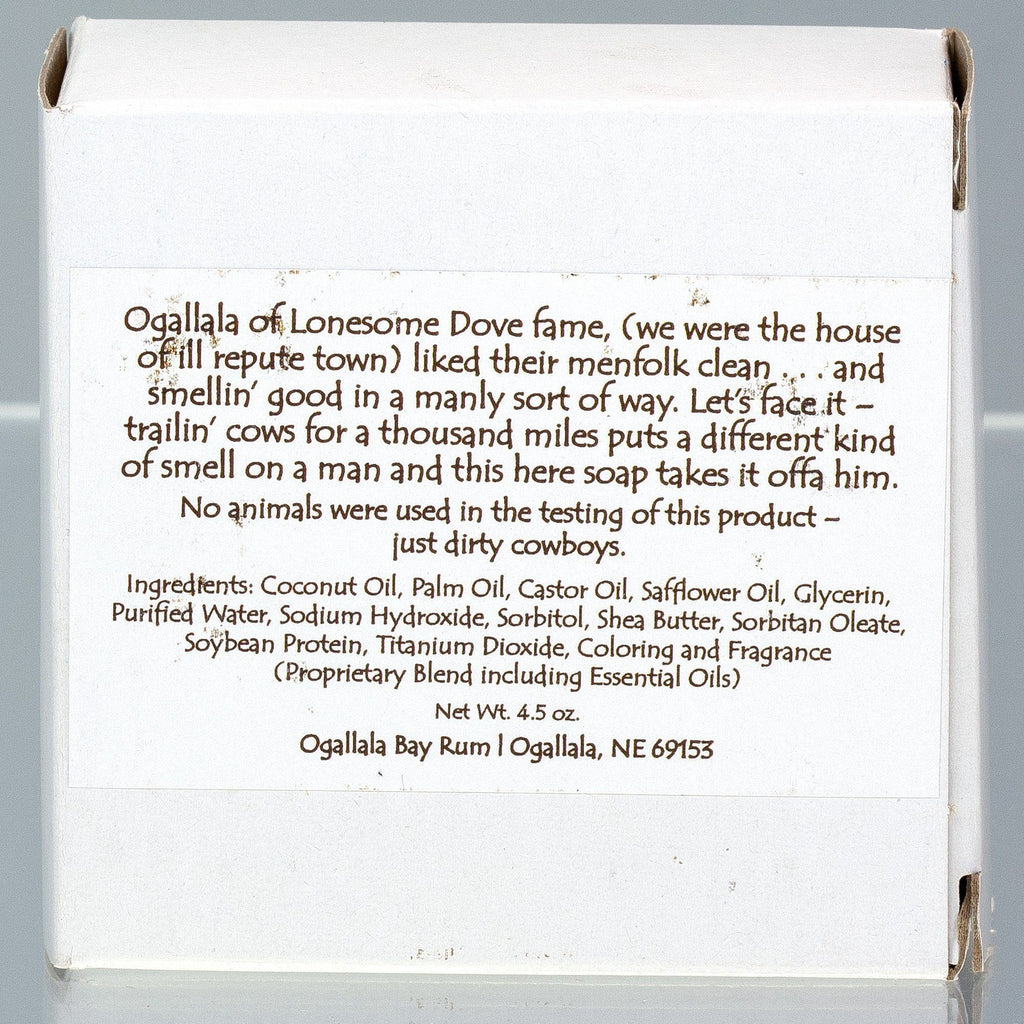 Ogallala of Lonesome Dove fame, (we were the house
of ill repute town) liked their menfolk clean . . . and
smellin' good in a manly sort of way. Let's face it –
trailin' cows for a thousand miles puts a different kind
of smell on a man and this here soap takes it offa him.
No animals were used in the testing of this product –
just dirty cowboys.
Ingredients: Coconut Oil, Palm Oil, Castor Oil, Safflower Oil, Glycerin,
Purified Water, Sodium Hydroxide, Sorbitol, Shea Butter, Sorbitan Oleate,
Soybean Protein, Titanium Dioxide, Coloring and Fragrance
(Proprietary Blend including Essential Oils)
Net Wt. 4.5 oz.
Ogallala Bay Rum | Ogallala, NE 69153